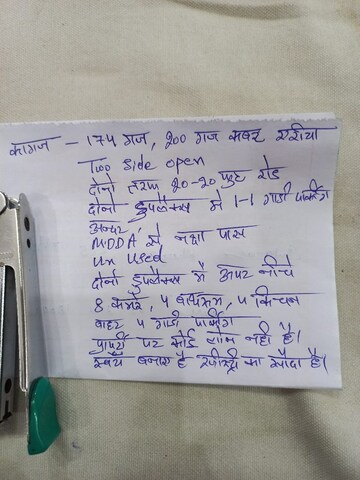 कागज - 174 गज, 200 गज कवर एरीया
Two side open
दोनो तरफ 20-20 फुट रोड
दोनो डुपलैक्स मे 1-1 गाडी पार्किंग
अन्दर,
MDDA से नक्शा पास
un used
दोनो डुपलैक्स मैं ऊपर नीचे
8 कमरे, 4 बाथरूम, 4 किचन
बाहर 4 गाडी पार्किंग
प्रापर्टी पर कोई लोन नही है।
स्वयँ बनाया है रजिस्ट्री का सौदा है।